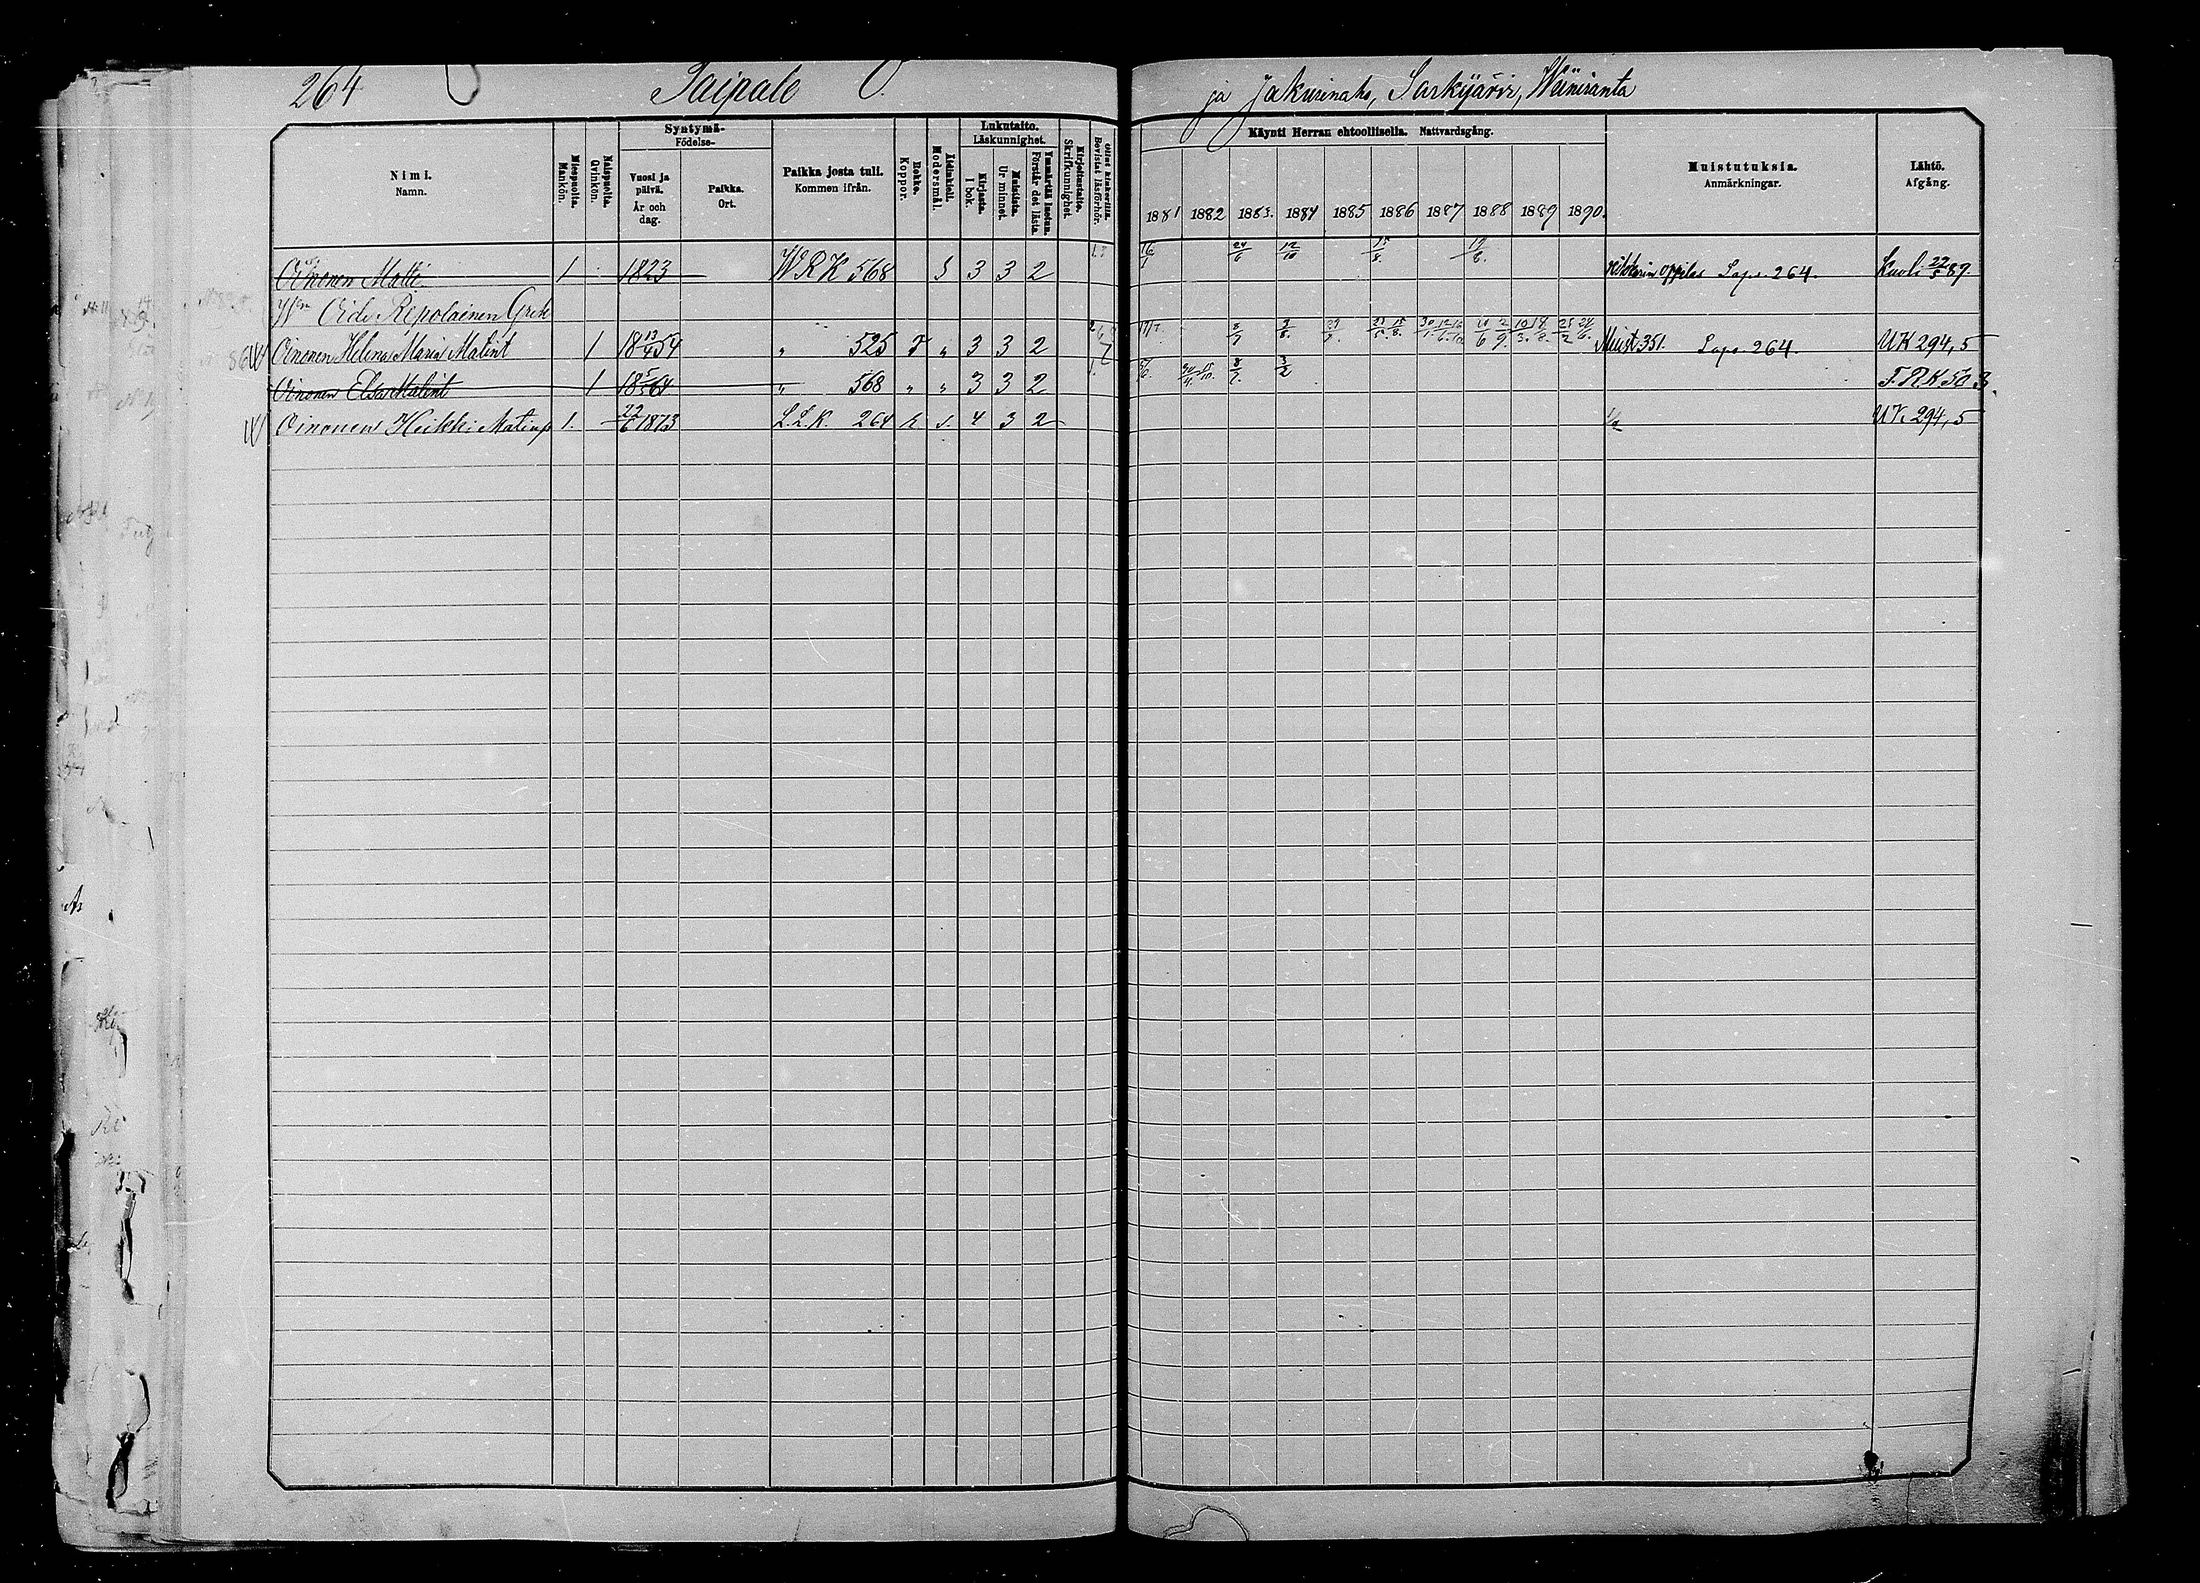 264 Taipale O. ja Jakurinaho, Sarkijärvi, Wiiniranta
Nimi. Namn.
Miespuolta. Mankön.
Naispuolta. Qvinkön.
Syntymä- Födelse-
Vuosi ja päivä. År och dag.
Paikka. Ort.
Paikka josta tuli. Kommen ifrån.
Rokko. Koppor.
Äidinkieli. Modersmål.
Lukutaito. Läskunnighet.
Kirjasta. I bok.
Muistista. Ur minnet.
Ymmärtää luetun. Förstår det lästa.
Kirjoitustaito. Skrifkunnighet.
Ollut kinkerillä. Bevistat läsförhör.
Käynti Herran ehtoollisella. Nattvardsgång.
1881 1882 1883. 1884 1885 1886 1887 1888 1889 1890.
Muistutuksia. Anmärkningar.
Lähtö. Afgång.
Oinonen Matti 1 1823 WRK 568 S 3 3 2 16/1 24/6 12/10 15/8. 19/8. oppilas Laps. 264. Kuoli 22/5 89.
Repolainen Greta
Oinonen Helena Maria Matint 1 18 13/4 54 " 525 r " 3 3 2 Muist 351. Laps. 264. UK 294,5
Oinonen Elsa Matint 1 18 5/5 64 " 568 " " 3 3 2 8/7. 3/2 F.RK 503.
Oinonen Heikki Matinp 1. 22/6 1873 L.L.K. 264 r s. 4 3 2 UK. 294,5